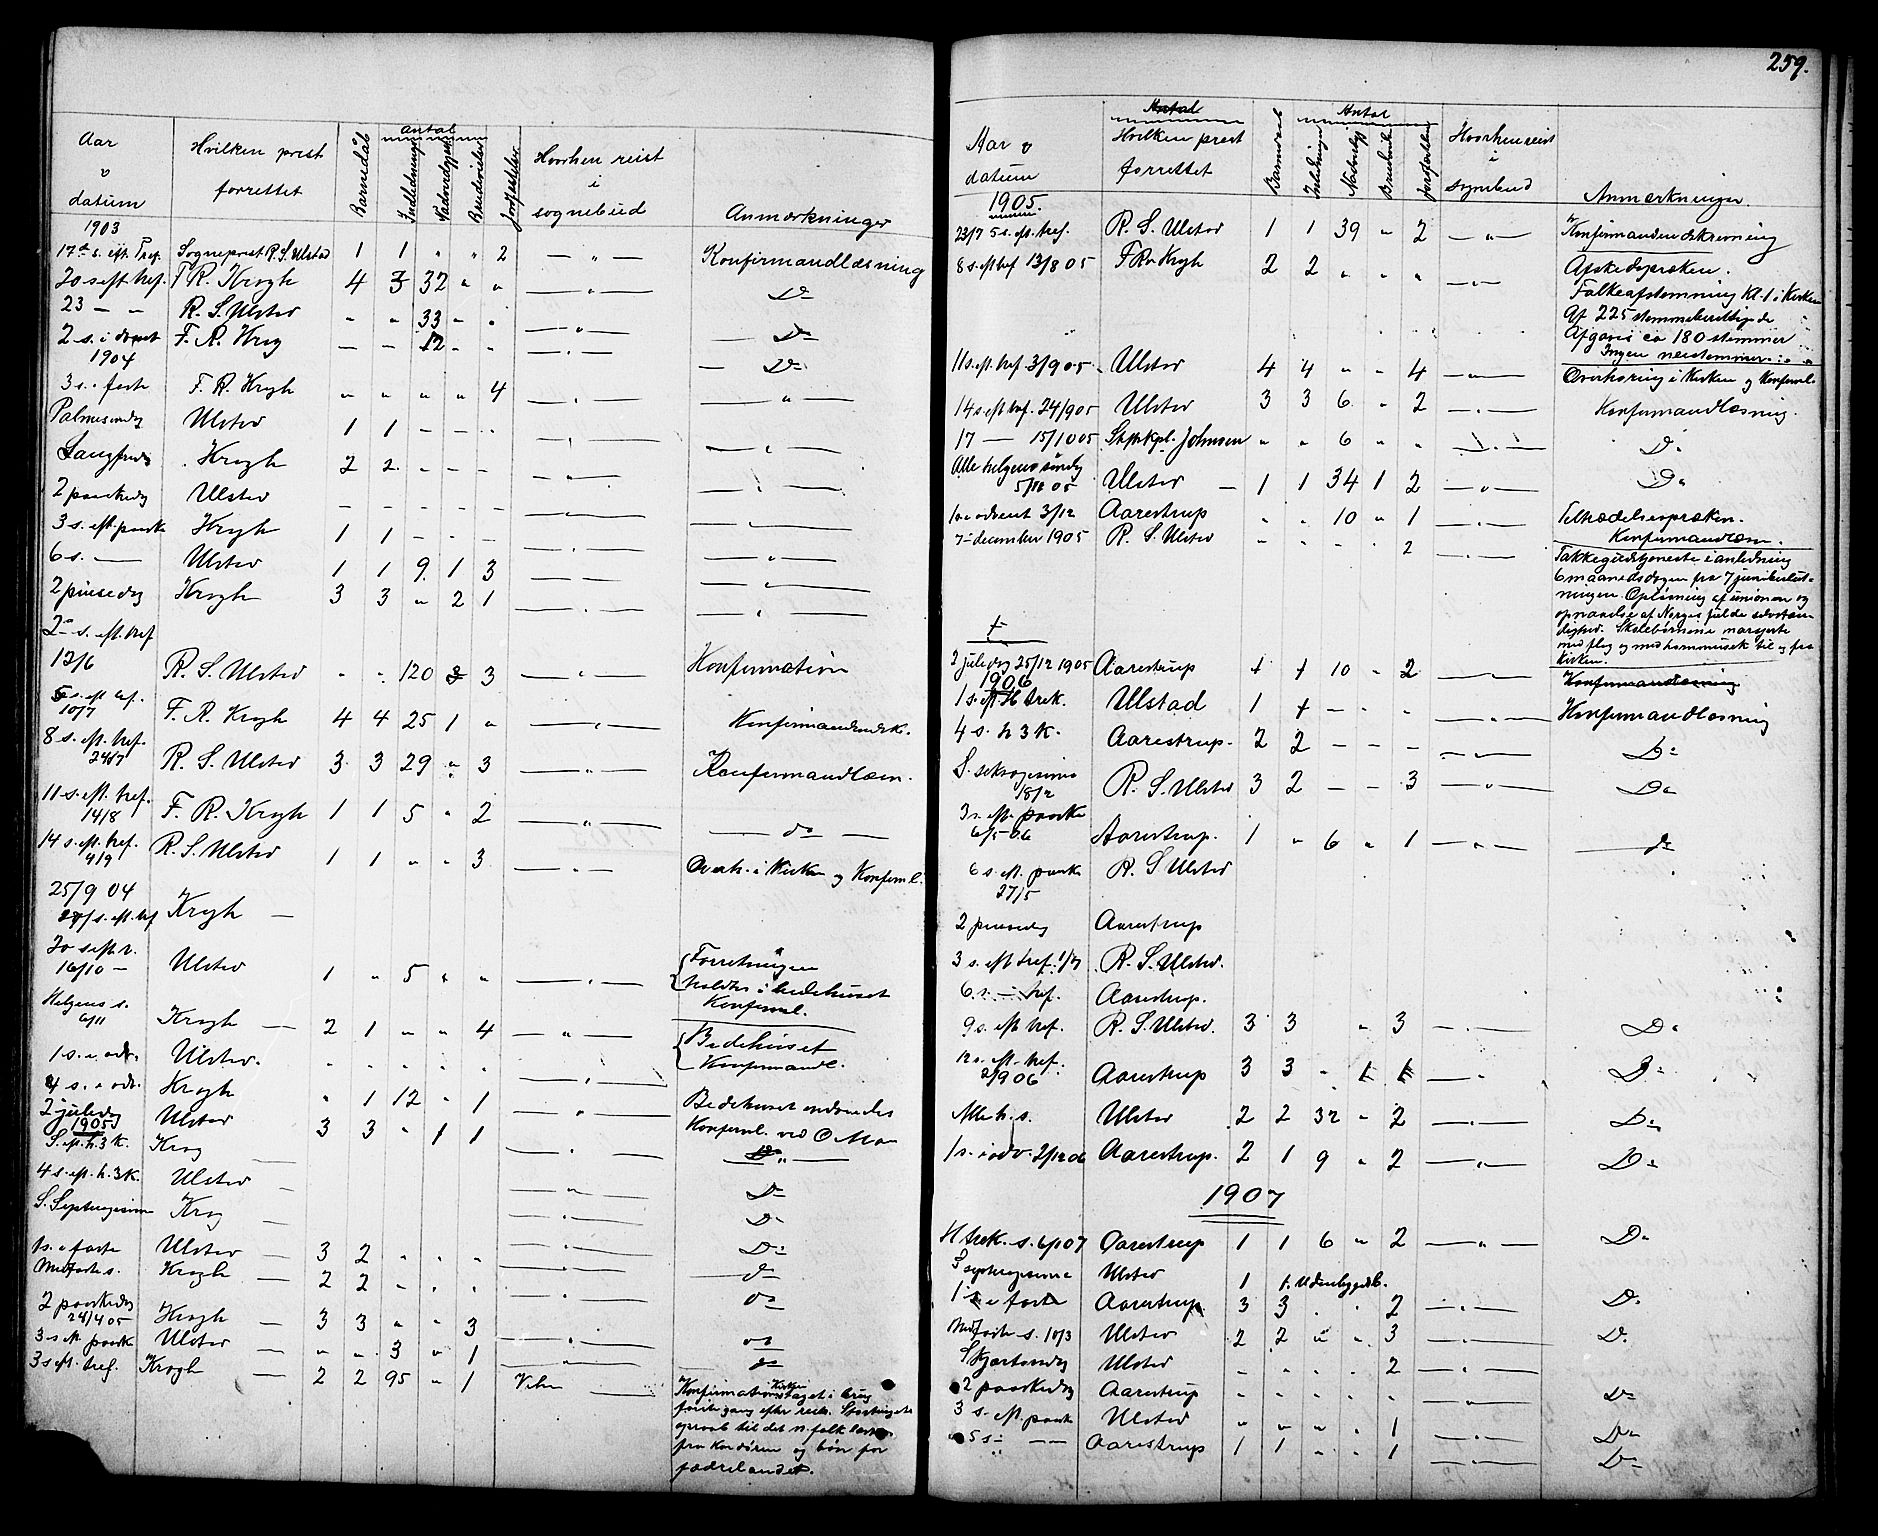 Aar
o
datum
Hvilken prest
forrettet
Antal
Barnedåb
Indledninger
Nadverdgjester
Brudevielser
Jordfæstelser
Hvorhen reist
i
sognebud
Anmærkninger
1903
17de s. eft. Tref. Sogneprest R. S. Ulstad 1 1 " " 2 — " — Konfirmandlæsning
20 s eft tref. F R. Krogh 4 3 32 " " — " — Do
23 — " R. S. Ulstad " " 33 — " — " — Do
2 s. i advent F. R. Krog — — 12 - - — " — — Do
1904
3 s. i faste F. R. Krogh " " " " 4 — " — — " —
Palmesøndag Ulstad 1 1 - - - — " — — " —
Langfredag Krogh 2 2 - - - — " — — " —
2 paaskedag Ulstad - - - - - — " — — " —
3 s. eft. paaske Krogh 1 1 - - - — " — — " —
6 s. — Ulstad 1 1 9 1 3 — " — — " —
2 pinsedag Krogh 3 3 " 2 1 — " — — " —
2den s. eft. tref
12/6 R. S. Ulstad " " 120 3 — " — Konfirmation
5 s. eft. tref.
10/7 F. R. Krogh 4 4 25 1 " — " — Konfirmandindsk.
8 s. eft. tref.
24/7 R. S. Ulstad 3 3 29 " 3 — " — Konfirmandlæsn.
11 s. eft. tref.
14/8 F. R. Krogh 1 1 5 " 2 — " — — do —
14 s. eft. tref.
4/9 R. S. Ulstad 1 1 " " 3 — " — Overh. i Kirken og Konfirml.
25/9 04
s. eft. tref Krogh —
20 s eft tr.
16/10 — Ulstad 1 " 5 " " — " — Forretningen
holdtes i bedehuset
Konfirml.
Helgens s.
6/11 Krogh — 2 1 " " 4 — " — Bedehuset
Konfirmandl.
1 s. i adv. Ulstad. " " " " " — " —
4 s. i adv. Krogh " 1 12 " 1 — " — Bedehuset
2 juledag Ulstad 3 3 " 1 1 Konfirml. ved O Moe
1905
S. eft. h. 3 K. Krog — — " — Do " —
4 s. eft. h. 3 K. Ulstad — — " — Do
S. Septuagesima Krog — — " — Do
1 s. i faste Ulstad — 3 2 " " " — " — Do
Midfaste s. Krogh — 2 2 " " " — " — do
2 paaskedag
24/4 05 Krogh — 3 3 " " 3 — " — do
3 s eft paask Ulstad — " " 3 " 1 — " — do
3 s eft. tref. Krogh — 2 2 95 " 1 — " — do
Konfirmation Kirken taget i brug
første gang efter rest. Stortingets
opraab til det n. folk læstes
fra Kordøren og bøn for
fædrelandet.
259.
Antal
Aar o
datum
Hvilken prest
forrettet
Antal
Barnedaab
Inledninger
Nadverdgj
Brudevielse
Jordfæstelse
Hvorhen reist
i
sognebud
Anmærkninger.
1905.
23/7 5 s. eft. tref. R. S. Ulstad 1 1 39 " 2 — " — Konfirmandindskrivning
8 s. eft tref 13/8 05 F Rv. Krogh 2 2 " " " — " — Afskedspræken.
Folkeafstemning Kl. 1 i Kirken
Af 225 stemmeberettigede
Afgaves ca 180 stemmer
Ingen neistemmer.
11 s. eft. tref. 3/9 05. Ulstad 4 4 " " 4 — " — Overhøring i Kirken og Konfirml.
14 s eft tref. 24/9 05 Ulstad 3 3 6 " 2 — " — Konfirmandlæsning.
17 — 15/10 05 Stiftskpl. Johnsen " " 6 " " — " — Do
Alle helgens søndag
5/11 05 Ulstad — 1 1 34 1 2 — " — Do
1ste advent 3/12 Aarestrup " " 10 " 1 — " — Tiltrædelsespræken.
Konfirmandlæsn.
7de december 1905 R. S. Ulstad - - - - 2 — " — Takkegudstjeneste i anledning
6 maanedsdagen fra 7 junibeslut-
ningen. Opløsning af unionen og
opnaaelse af Norges fulde selvstæn-
dighed. Skolebørnene marsjerte
med flag og med hornmusik til og fra
Kirken.
2 juledag 25/12 1905 Aarestrup 1 1 10 " 2 — " — Konfirmandlæsning
1906
1 s. eft H. trek. Ulstad 1 1 — " " — " — Konfirmandlæsning
4 s. h 3 K. Aarestrup. 2 2 — — — — " — Do
S. seksagesima
18/2 R. S. Ulstad 3 2 — — 3 — " — Do
3 s. eft. paaske
6/5 06 Aarestrup. 1 " 6 " 1 — " — — do
6 s. eft. paaske
27/5 R. S Ulstad
2 pinsedag Aarestrup
3 s. eft tref. 1/7 R. S. Ulstad.
6 s. — tref. Aarestrup.
9 s. eft tref. R. S. Ulstad. 3 3 " 3 — " — Do
12 s. eft. tref.
2/9 06 Aarestrup 3 3 " 1 1 — " Do
Alle h. s. Ulstad 2 2 32 " 2 — " — Do
1 s. i adv. 2/12 06 Aarestrup. 2 1 9 " 2 — " — Do
1907
H. trek. s. 6/1 07 Aarestrup 1 1 6 " 2 — " — Do
S septuagesima Ulstad 1 1. Udenbygdsb.
1 s i faste Aarestrup 3 3 " " 2 — " — Do
Midfaste s. 10/3 Ulstad 2 2 " " 3 — " — Do
Skjærtorsdag Ulstad " " " " 2 — " —
2 paaskedag Aarestrup " " " " " — " — Do
3 s. eft. paaske Ulstad " " " " 1 — " — Do
5 s — — — Aarestrup 1 1 " " 1 — " — Do